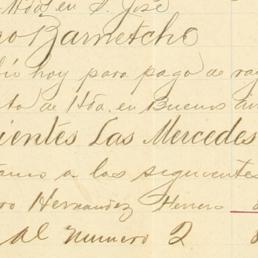 Hda. en S. José
co Barnetche
dió hoy para pago de ray
ta de Hda. en Buenos
ientes Las Mercedes
a los siguientes
ro Hernandez Herrero
al numero 2